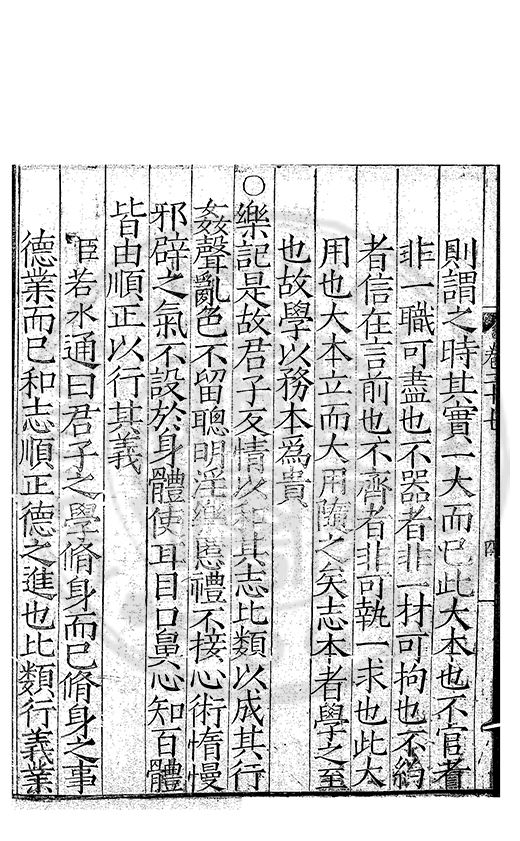 則謂之時其實一大而已此大本也不官者
非一職可盡也不器者非一材可拘也不約
者信在言前也不齊者非可執一求也此大
用也大本立而大用隨之矣志本者學之至
也故學以務本爲貴
○樂記是故君子反情以和其志比類以成其行
姦聲亂色不留聰明淫樂慝禮不接心術惰慢
邪辟之氣不設於身體使耳目口鼻心知百體
皆由順正以行其義
臣若水通曰君子之學脩身而已脩身之事
德業而已和志順正德之進也比類行義業
卷二十七
四